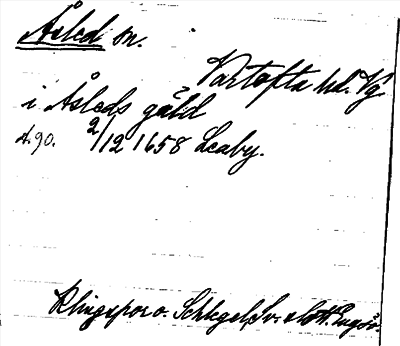 Åsled sn.
Vartofta hd. Vg.
i Åsleds gäld
d. 90. 2/12 1658 Leaby.
Klingspor o. Schlegel, Sv. slott. Engsö.